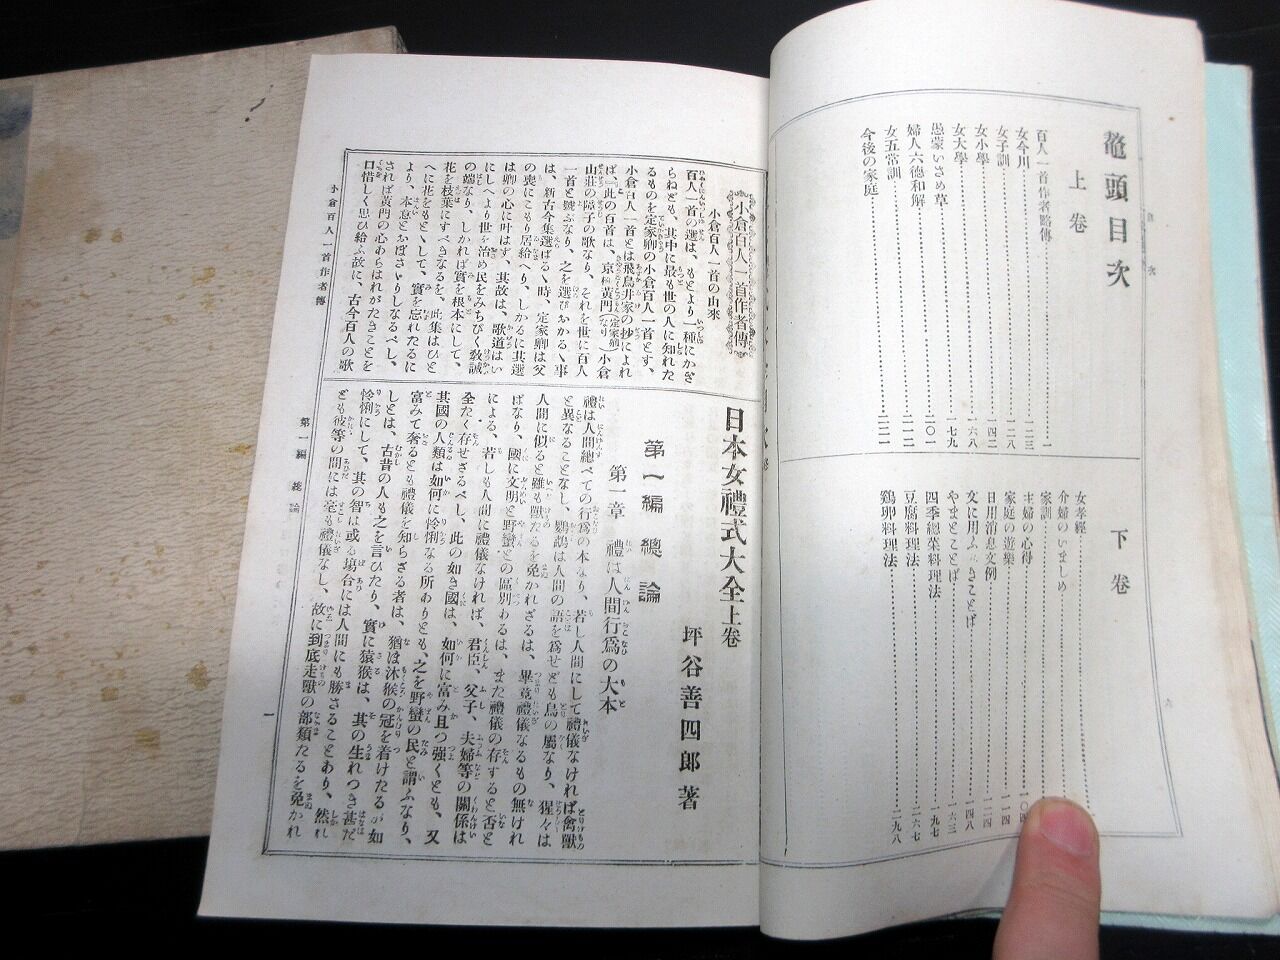 鼇頭目次
上卷
百人一首作者略傳……一
女今川……一二三
女子訓……一二八
女小學……一四二
女大學……一六八
愚蒙いさめ草……一七九
婦人六德和解……二〇一
女五常訓……二一二
今後の家庭……二二一
下卷
女孝經
介婦のいましめ
家訓
主婦の心得
家庭の遊樂
日用消息文例……一二四
文に用ふ きことば……一四八
やまとことば……一六三
四季總菜料理法……一九七
豆腐料理法……二六七
鷄卵料理法……二九八
目次
六
小倉百人一首作者傳
小倉百人一首の由來
百人一首の選は、もとより一種にかぎ
らねども、其中に最も世の人に知れた
るものを定家卿の小倉百人一首とす、
小倉百人一首とは飛鳥井家の抄によれ
ば、『此の百首は、京極黃門(定家卿なり)小倉
山莊の障子の歌なり、それを世に百人
一首と號ぶなり、之を選びおかるゝ事
は、新古今集選ばるゝ時、定家卿は父
の喪にこもり居給へり、しかるに其選
は卿の心に叶はず、其故は、歌道はい
にしへより世を治め民をみちびく敎誡
の端なり、しかれば實を根本にして、
花を枝葉にすべきなるを、此集はひと
へに花をもとゝして、實を忘れたるに
より、本意とおぼさゞりしなるべし、
されば黃門の心あらはれがたきことを
口惜しく思ひ給ふ故に、古今百人の歌
小倉百人一首作者傳
日本女禮式大全上卷
坪谷善四郎著
第一編 總論
第一章 禮は人間行爲の大本
禮は人間總べての行爲の本なり、若し人間にして禮儀なければ禽獸
と異なることなし、鸚鵡は人間の語を爲せども鳥の屬なり、猩々は
人間に似ると雖も獸たるを免かれざるは、畢竟禮儀なるもの無けれ
ばなり、國に文明と野蠻との區別あるは、また禮儀の存すると否と
による、若しも人間に禮儀なければ、君臣、父子、夫婦等の關係は
全たく存せざるべし、此の如き國は、如何に富み且つ強くとも、又
其國の人類は如何に怜悧なる所ありとも、之を野蠻の民と謂ふなり、
富みて奢るとも禮儀を知らざる者は、猶ほ沐猴の冠を着けたるが如
しとは、古昔の人も之を言ひたり、實に猿猴は、其の生れつき甚だ
怜悧にして、其の智は或る場合には人間にも勝さることあり、然れ
ども彼等の間には毫も禮儀なし、故に到底走獸の部類たるを免かれ
第一編 總論
一